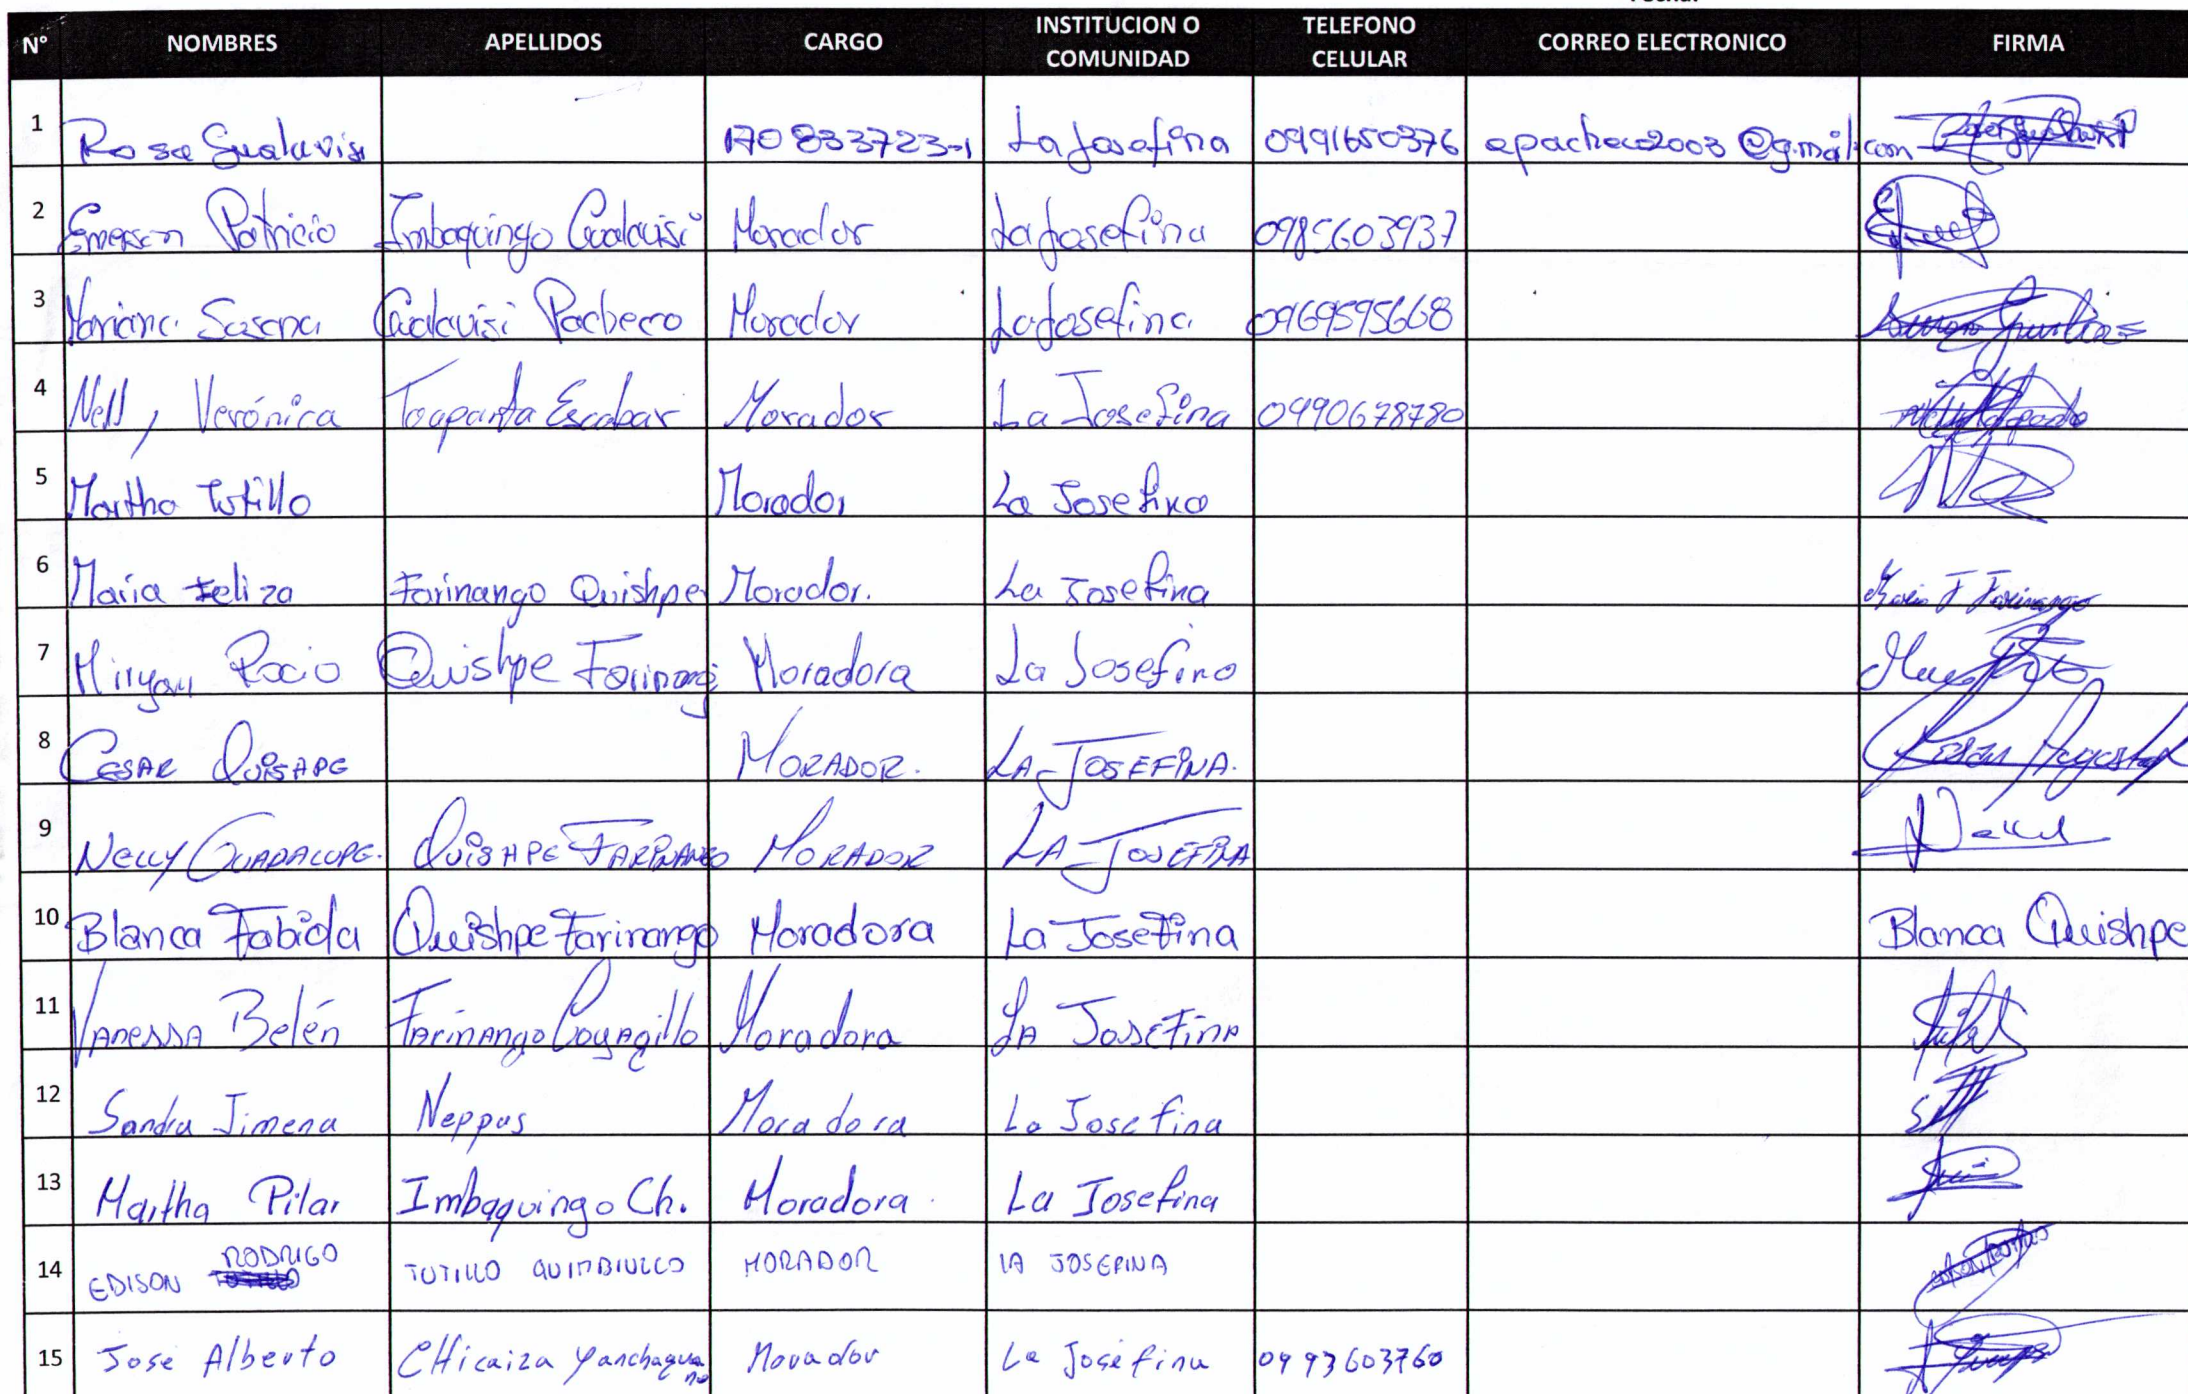 N° NOMBRES APELLIDOS CARGO INSTITUCION O COMUNIDAD TELEFONO CELULAR CORREO ELECTRONICO FIRMA
1 Rosa Gualavisi 170833723-1 La Josefina 0991650376 epacheco2003@gmail.com
2 Emerson Patricio Imbaquingo Gualavisi Morador La Josefina 0985603937
3 Mariana Susana Gualavisi Pacheco Morador La Josefina 0969595668
4 Nelly Verónica Toapanta Escobar Morador La Josefina 0990678780
5 Martha Tutillo Morador La Josefina
6 María Feliza Farinango Quishpe Morador. La Josefina María F Farinango
7 Miryam Rocio Quishpe Farinango Moradora La Josefina
8 CESAR QUISHPE MORADOR. LA JOSEFINA.
9 NELLY GUADALUPE. QUISHPE FARINANGO MORADOR LA JOSEFINA
10 Blanca Fabiola Quishpe Farinango Moradora La Josefina Blanca Quishpe
11 Vanessa Belén Farinango Coyagillo Moradora La Josefina
12 Sandra Jimena Neppas Moradora La Josefina
13 Martha Pilar Imbaquingo Ch. Moradora. La Josefina
14 EDISON RODRIGO TUTILLO QUIMBIULCO MORADOR LA JOSEFINA
15 Jose Alberto CHicaiza Yanchaguano Morador La Josefina 0993603760